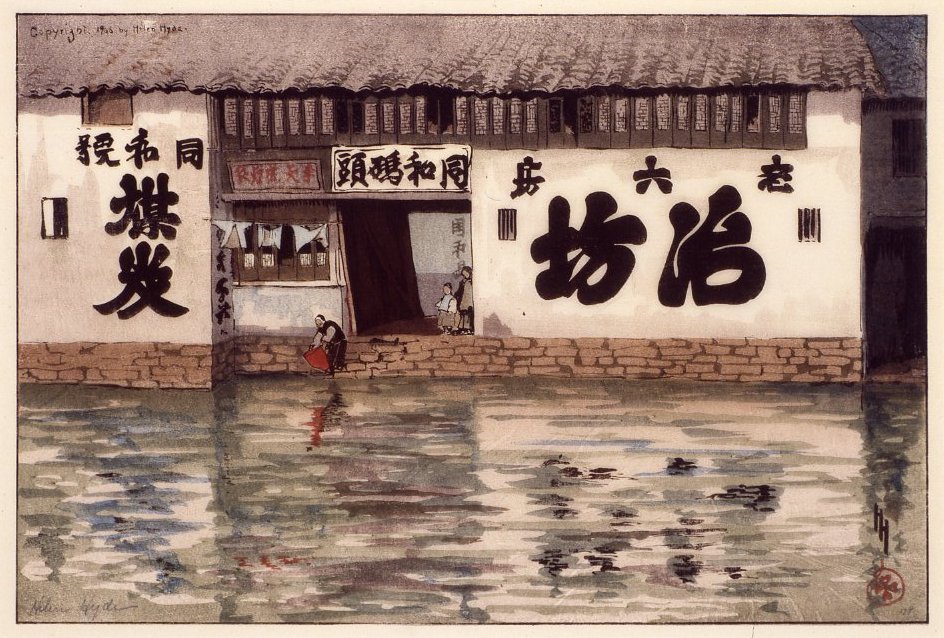 Copyright, by Helen Hyde.
同和號
煤炭
同和碼頭
同和
老六房
治坊
Helen Hyde